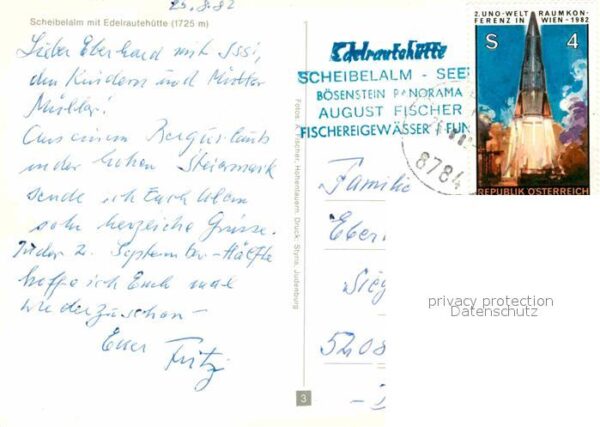 23.8.82
Scheibelalm mit Edelrautehütte (1725 m)
Lieber Eberhard mit Issi,
den Kindern und Mutter
Müller!
Aus einem Bergurlaub
in der hohen Steiermark
sende ich Euch allen
sehr herzliche Grüsse.
In der 2. September-Hälfte
hoffe ich Euch mal
wiederzuschen –
Euer
Fritz
Fotos: A. Fischer, Hohentauern, Druck: Styria, Judenburg
3
Edelrautehütte
SCHEIBELALM - SEE
BÖSENSTEIN PANORAMA
AUGUST FISCHER
FISCHEREIGEWÄSSER
8784
2. UNO-WELTRAUMKON-
FERENZ IN WIEN-1982
S 4
REPUBLIK ÖSTERREICH
Familie
Eber
Sieg
5208
privacy protection
Datenschutz